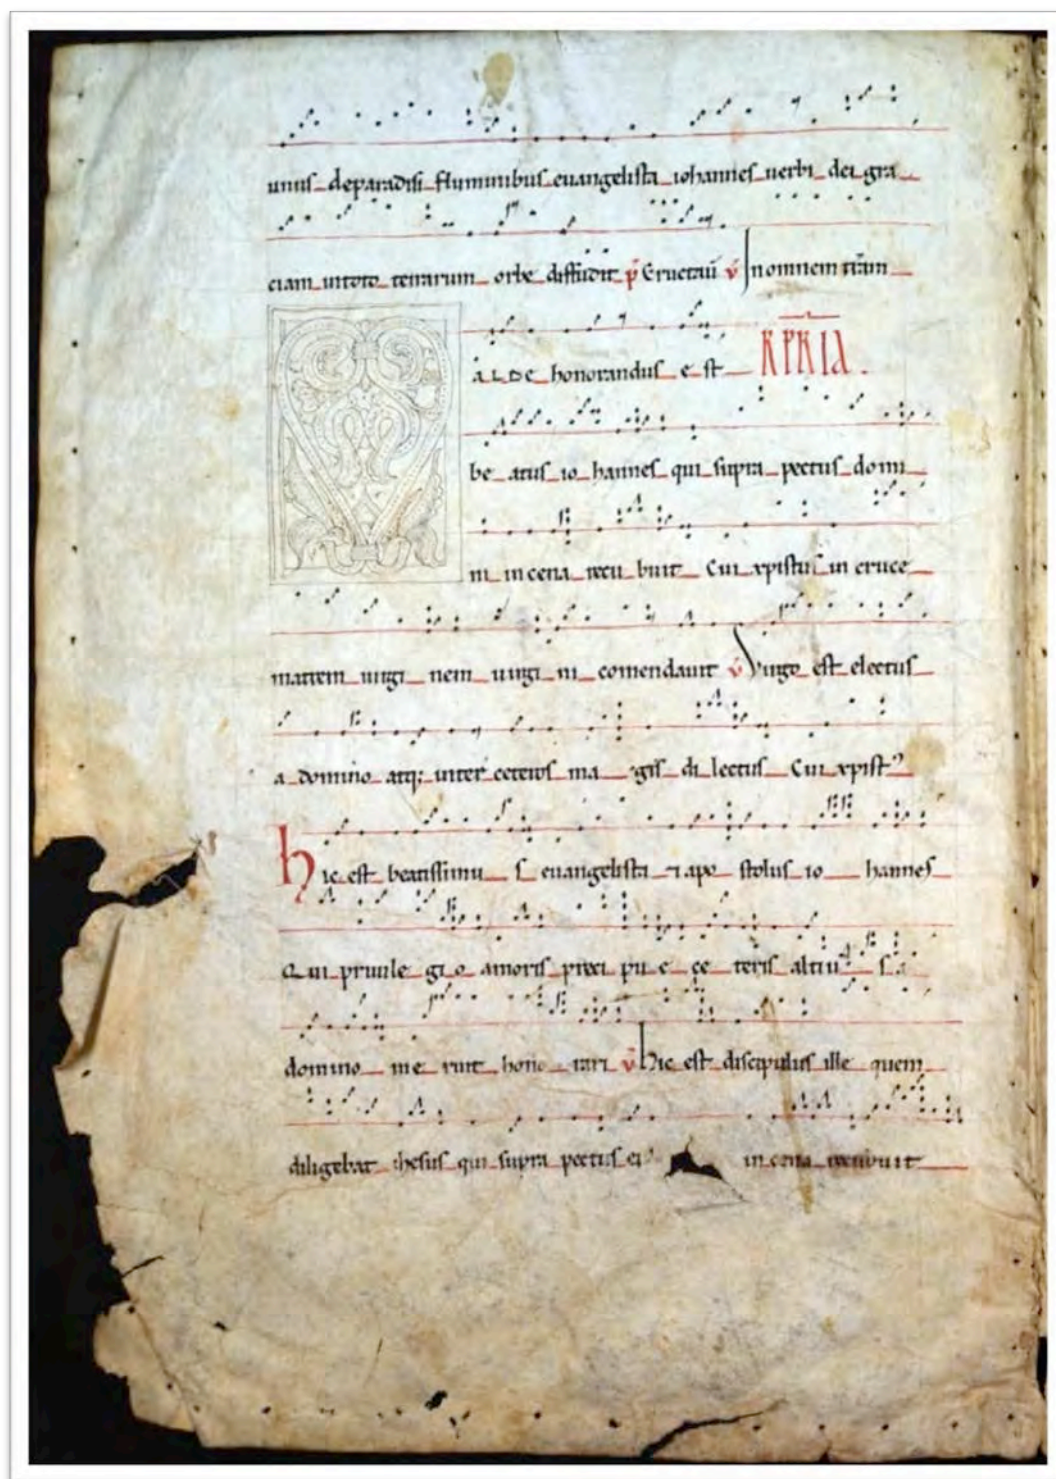 unus deparadisi fluminibus euangelista iohannes uerbi dei gra
ciam intoto terrarum orbe diffudit p̄ Eructauit v̄ Inomnem t̄ram
aLDe honorandus est R̄P̄R̄IA.
be atus io hannes qui supra pectus domi
ni incena recu buit Cui xpistus in cruce
matrem uirgi nem uirgi ni comendauit v̄ Virgo est electus
a domino atq; inter ceteros ma gis di lectus Cui xpistꝰ
hic est beatissimu s euangelista ⁊ apo stolus io hannes
Qui priuile gi o amoris preci pu e ce teris altiu s a
domino me ruit hono rari v̄ hic est discipulus ille quem
diligebat ihesus qui supra pectus ei incena recubuit